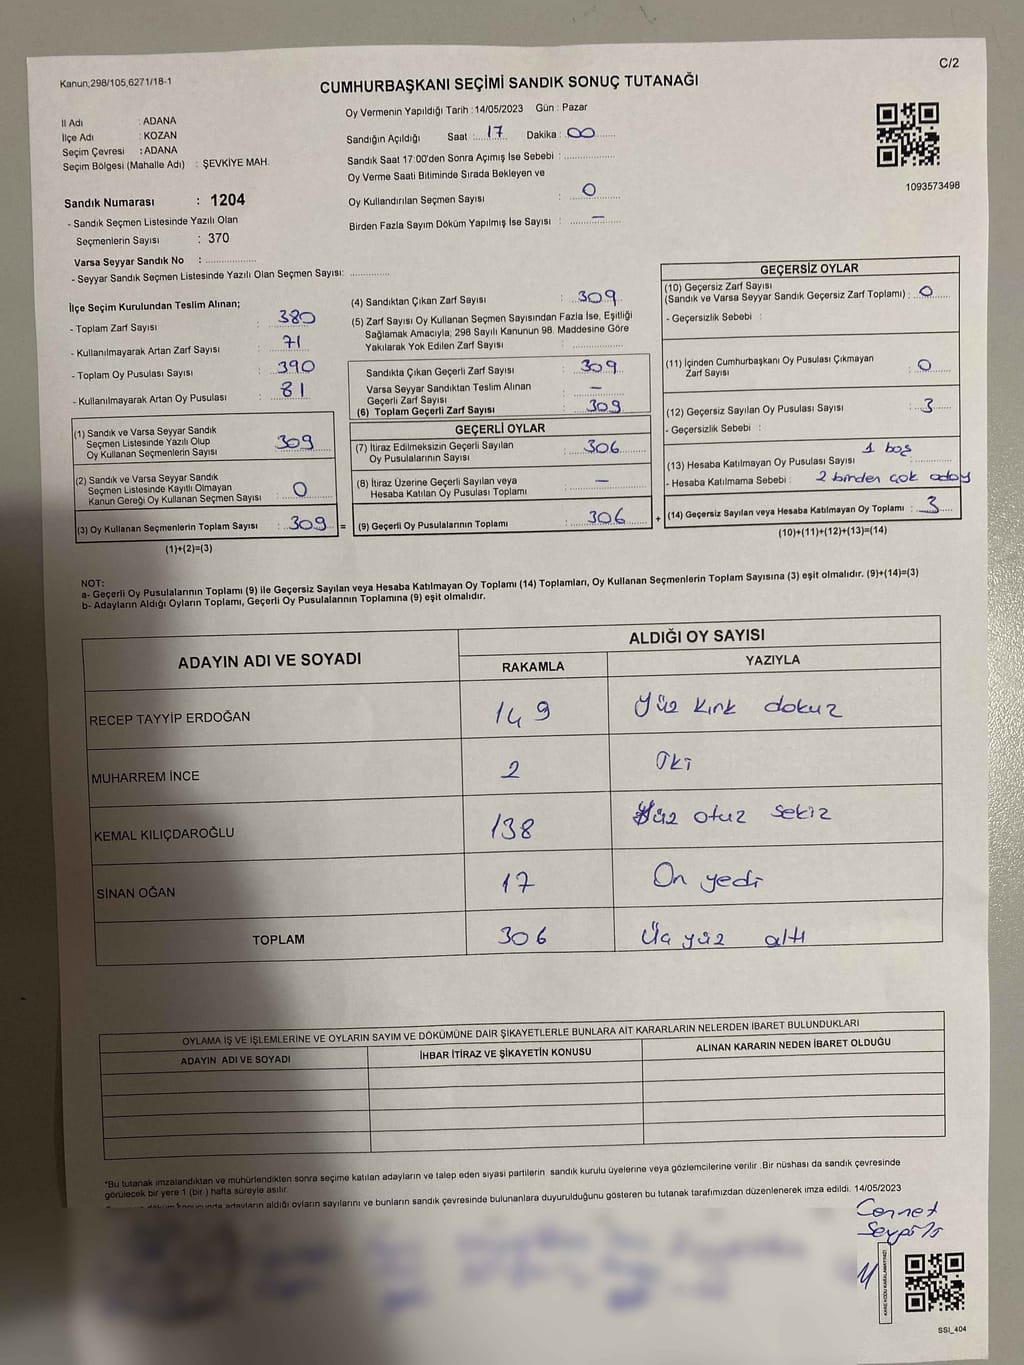 Kanun;298/105,6271/18-1
C/2
CUMHURBAŞKANI SEÇİMİ SANDIK SONUÇ TUTANAĞI
İl Adı : ADANA
İlçe Adı : KOZAN
Seçim Çevresi : ADANA
Seçim Bölgesi (Mahalle Adı) : ŞEVKİYE MAH.
Sandık Numarası : 1204
- Sandık Seçmen Listesinde Yazılı Olan
Seçmenlerin Sayısı : 370
Varsa Seyyar Sandık No :
- Seyyar Sandık Seçmen Listesinde Yazılı Olan Seçmen Sayısı:
Oy Vermenin Yapıldığı Tarih : 14/05/2023 Gün : Pazar
Sandığın Açıldığı Saat : 17 Dakika : 00
Sandık Saat 17:00'den Sonra Açımış İse Sebebi :
Oy Verme Saati Bitiminde Sırada Bekleyen ve
Oy Kullandırılan Seçmen Sayısı : 0
Birden Fazla Sayım Döküm Yapılmış İse Sayısı : –
1093573498
İlçe Seçim Kurulundan Teslim Alınan;
- Toplam Zarf Sayısı : 380
- Kullanılmayarak Artan Zarf Sayısı : 71
- Toplam Oy Pusulası Sayısı : 390
- Kullanılmayarak Artan Oy Pusulası : 81
(1) Sandık ve Varsa Seyyar Sandık
Seçmen Listesinde Yazılı Olup
Oy Kullanan Seçmenlerin Sayısı : 309
(2) Sandık ve Varsa Seyyar Sandık
Seçmen Listesinde Kayıtlı Olmayan
Kanun Gereği Oy Kullanan Seçmen Sayısı : 0
(3) Oy Kullanan Seçmenlerin Toplam Sayısı : 309 =
(1)+(2)=(3)
(4) Sandıktan Çıkan Zarf Sayısı : 309
(5) Zarf Sayısı Oy Kullanan Seçmen Sayısından Fazla İse, Eşitliği
Sağlamak Amacıyla; 298 Sayılı Kanunun 98. Maddesine Göre
Yakılarak Yok Edilen Zarf Sayısı :
Sandıkta Çıkan Geçerli Zarf Sayısı : 309
Varsa Seyyar Sandıktan Teslim Alınan
Geçerli Zarf Sayısı : –
(6) Toplam Geçerli Zarf Sayısı : 309
GEÇERLİ OYLAR
(7) İtiraz Edilmeksizin Geçerli Sayılan
Oy Pusulalarının Sayısı : 306
(8) İtiraz Üzerine Geçerli Sayılan veya
Hesaba Katılan Oy Pusulası Toplamı : –
(9) Geçerli Oy Pusulalarının Toplamı : 306 +
GEÇERSİZ OYLAR
(10) Geçersiz Zarf Sayısı
(Sandık ve Varsa Seyyar Sandık Geçersiz Zarf Toplamı) : 0
- Geçersizlik Sebebi :
(11) İçinden Cumhurbaşkanı Oy Pusulası Çıkmayan
Zarf Sayısı : 0
(12) Geçersiz Sayılan Oy Pusulası Sayısı : 3
- Geçersizlik Sebebi :
1 boş
(13) Hesaba Katılmayan Oy Pusulası Sayısı :
- Hesaba Katılmama Sebebi : 2 binden çok aday
(14) Geçersiz Sayılan veya Hesaba Katılmayan Oy Toplamı : 3
(10)+(11)+(12)+(13)=(14)
NOT:
a- Geçerli Oy Pusulalarının Toplamı (9) ile Geçersiz Sayılan veya Hesaba Katılmayan Oy Toplamı (14) Toplamları, Oy Kullanan Seçmenlerin Toplam Sayısına (3) eşit olmalıdır. (9)+(14)=(3)
b- Adayların Aldığı Oyların Toplamı, Geçerli Oy Pusulalarının Toplamına (9) eşit olmalıdır.
ADAYIN ADI VE SOYADI
ALDIĞI OY SAYISI
RAKAMLA YAZIYLA
RECEP TAYYİP ERDOĞAN 149 Yüz kırk dokuz
MUHARREM İNCE 2 İki
KEMAL KILIÇDAROĞLU 138 Yüz otuz sekiz
SİNAN OĞAN 17 On yedi
TOPLAM 306 Üç yüz altı
OYLAMA İŞ VE İŞLEMLERİNE VE OYLARIN SAYIM VE DÖKÜMÜNE DAİR ŞİKAYETLERLE BUNLARA AİT KARARLARIN NELERDEN İBARET BULUNDUKLARI
ADAYIN ADI VE SOYADI İHBAR İTİRAZ VE ŞİKAYETİN KONUSU ALINAN KARARIN NEDEN İBARET OLDUĞU
*Bu tutanak imzalandıktan ve mühürlendikten sonra seçime katılan adayların ve talep eden siyasi partilerin sandık kurulu üyelerine veya gözlemcilerine verilir .Bir nüshası da sandık çevresinde
görülecek bir yere 1 (bir ) hafta süreyle asılır.
adayların aldığı oyların sayılarını ve bunların sandık çevresinde bulunanlara duyurulduğunu gösteren bu tutanak tarafımızdan düzenlenerek imza edildi. 14/05/2023
Cennet
KARE KODU KARALAMAYINIZ!
SSI_404